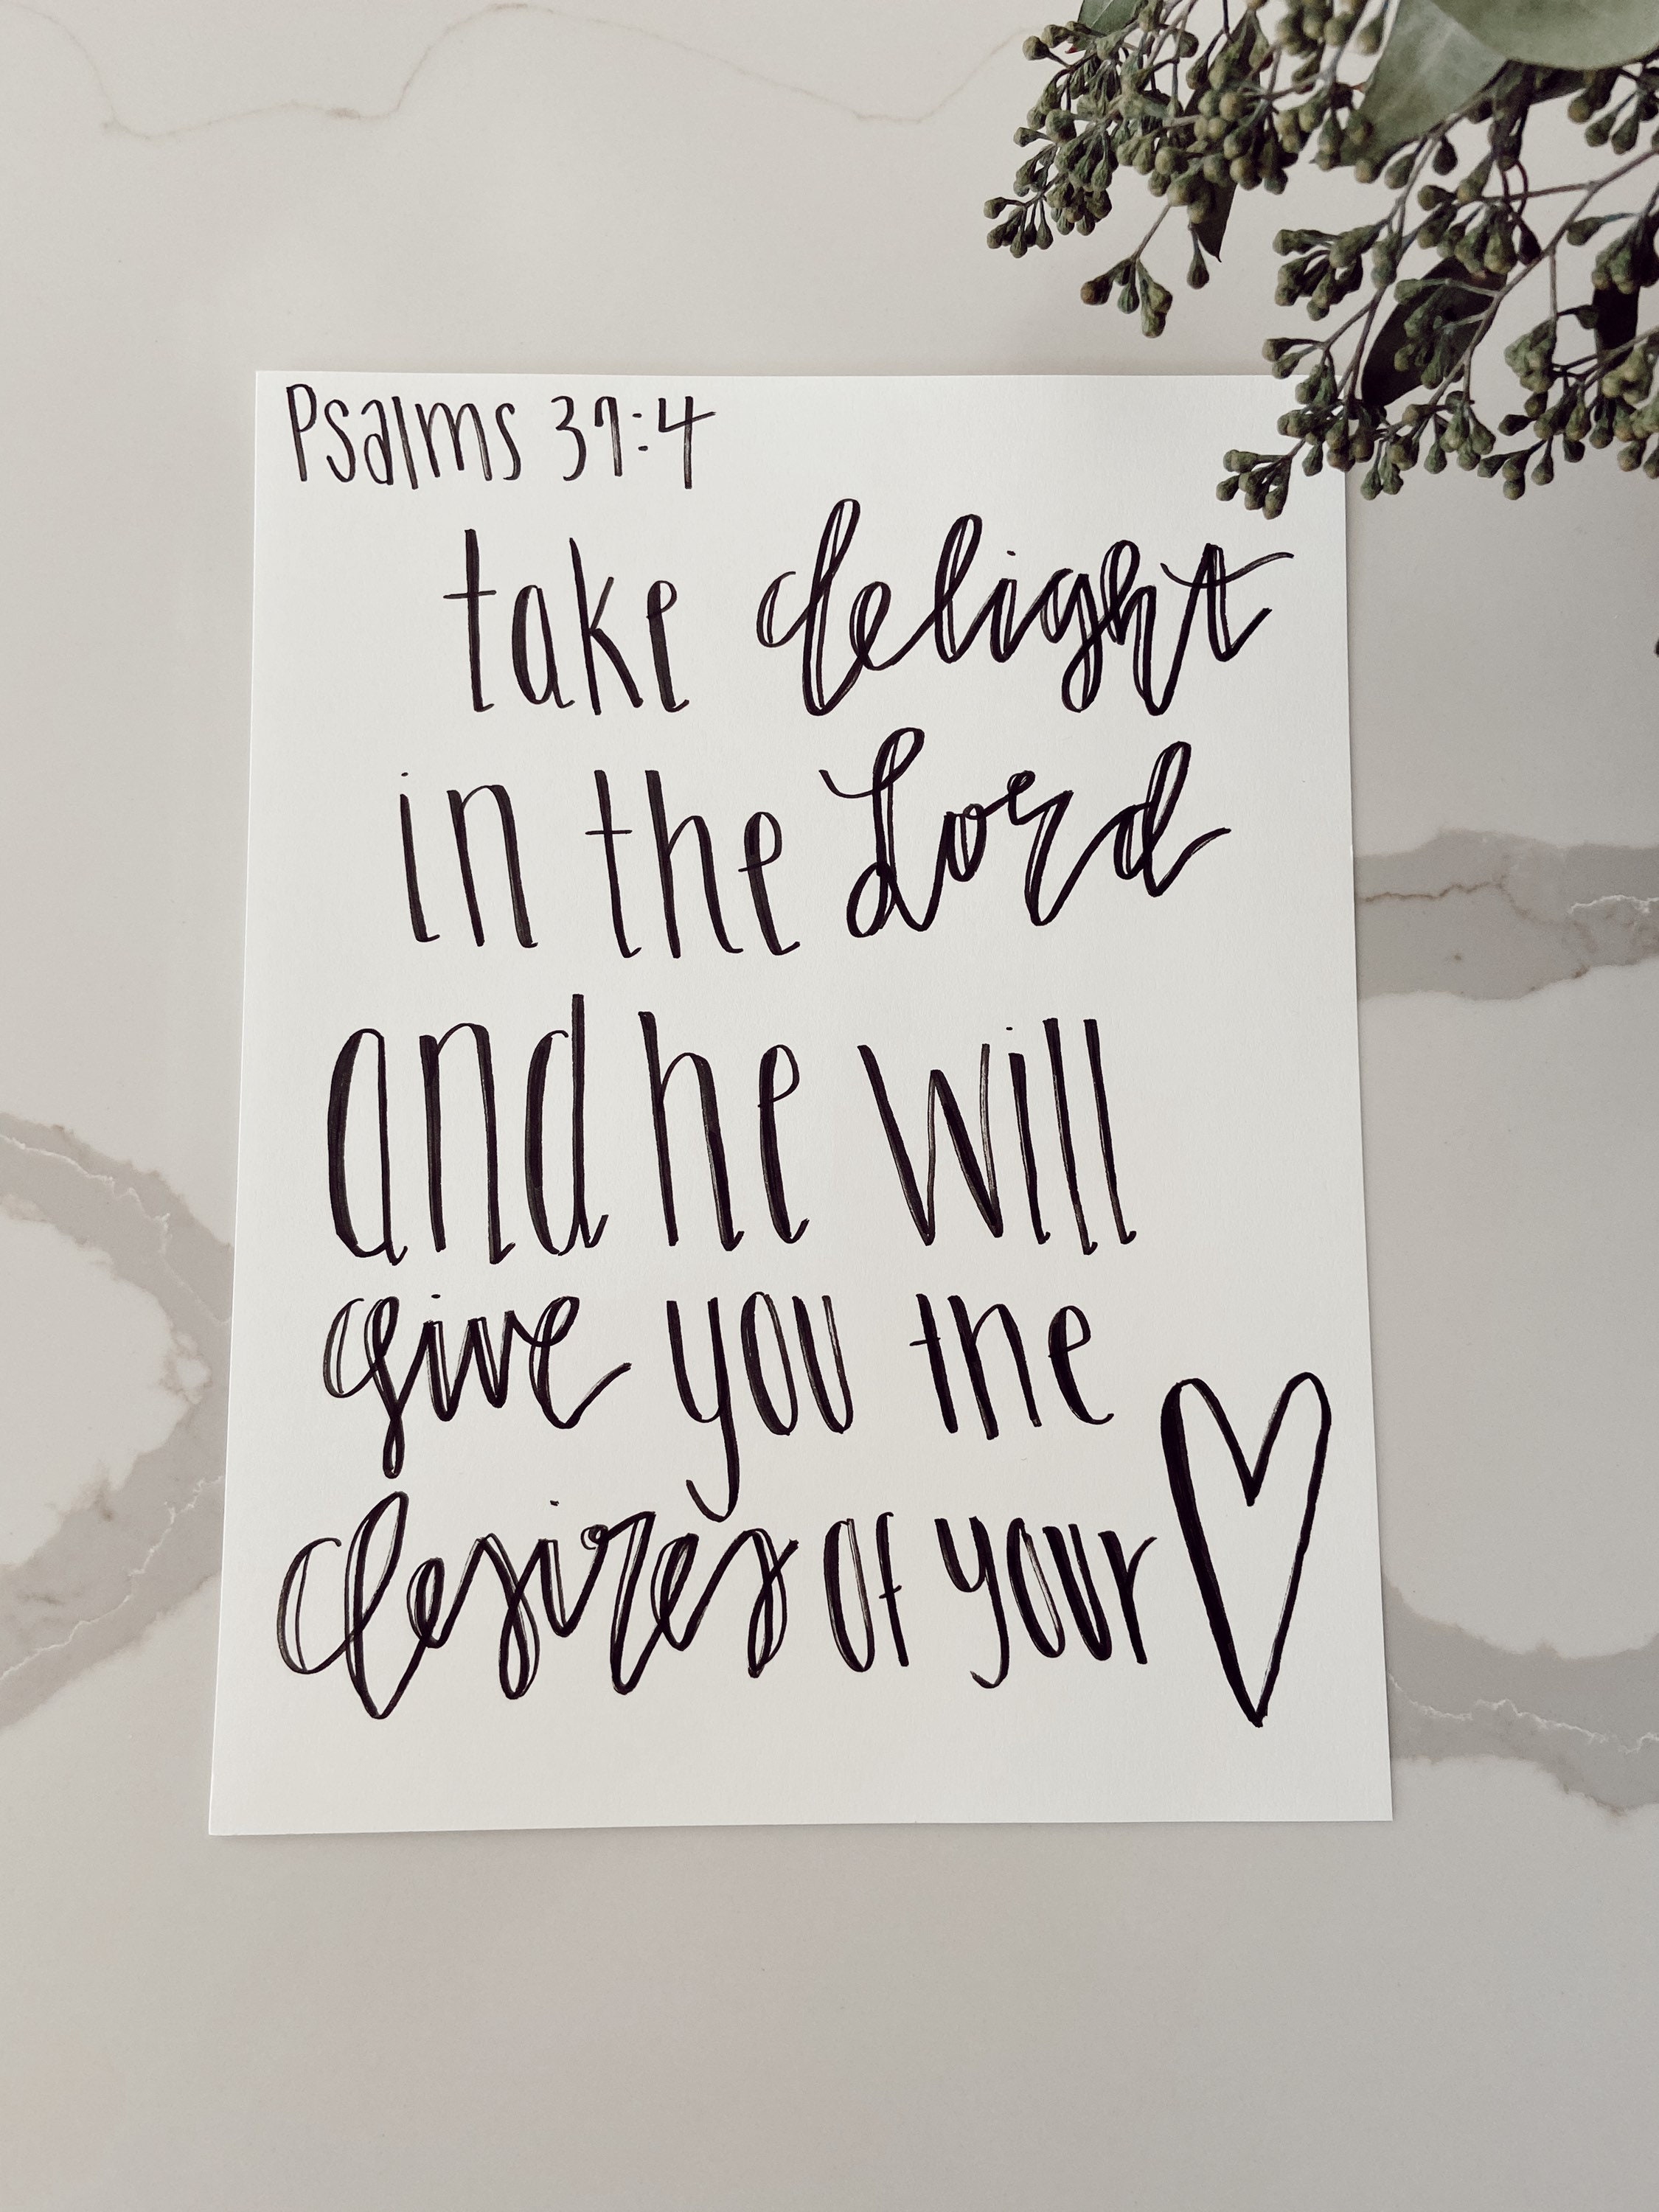 Psalms 37:4
take delight
in the Lord
and he will
give you the
desires of your